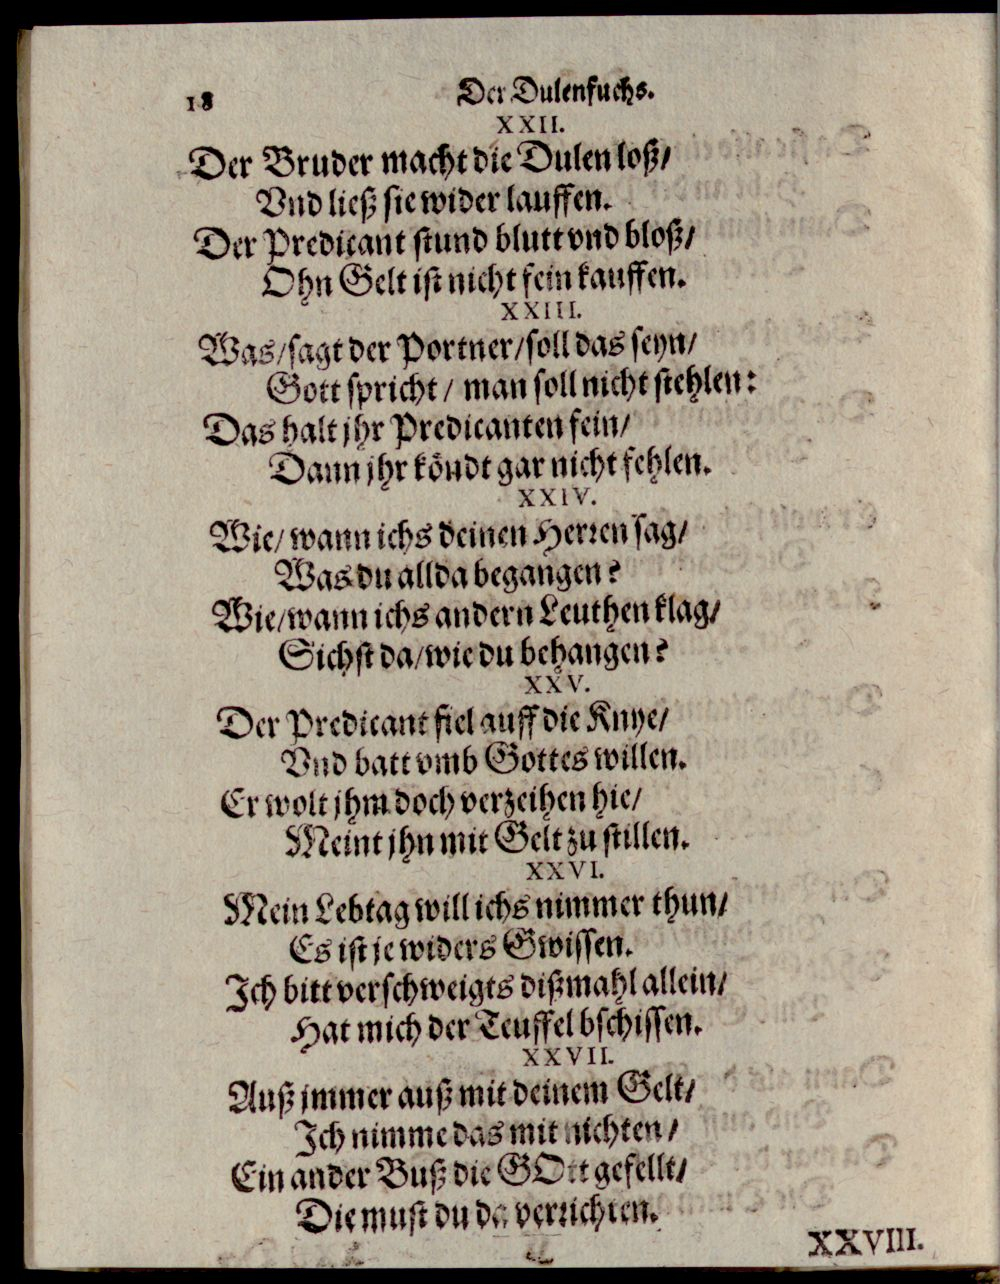 18 Der Dulenfuchs.
XXII.
Der Bruder macht die Dulen loß/
Vnd ließ sie wider lauffen.
Der Predicant stund blutt vnd bloß/
Ohn Gelt ist nicht fein kauffen.
XXIII.
Was/sagt der Portner/soll das seyn/
Gott spricht / man soll nicht stehlen:
Das halt jhr Predicanten fein/
Dann jhr köndt gar nicht fehlen.
XXIV.
Wie/ wann ichs deinen Herren sag/
Was du allda begangen?
Wie/wann ichs andern Leuthen klag/
Sichst da/wie du behangen?
XXV.
Der Predicant fiel auff die Knye/
Vnd batt vmb Gottes willen.
Er wolt jhm doch verzeihen hie/
Meint jhn mit Gelt zu stillen.
XXVI.
Mein Lebtag will ichs nimmer thun/
Es ist je widers Gwissen.
Ich bitt verschweigts dißmahl allein/
Hat mich der Teuffel bschissen.
XXVII.
Auß jmmer auß mit deinem Gelt/
Ich nimme das mit nichten /
Ein ander Buß die GOtt gefellt/
Die must du da verrichten.
XXVIII.